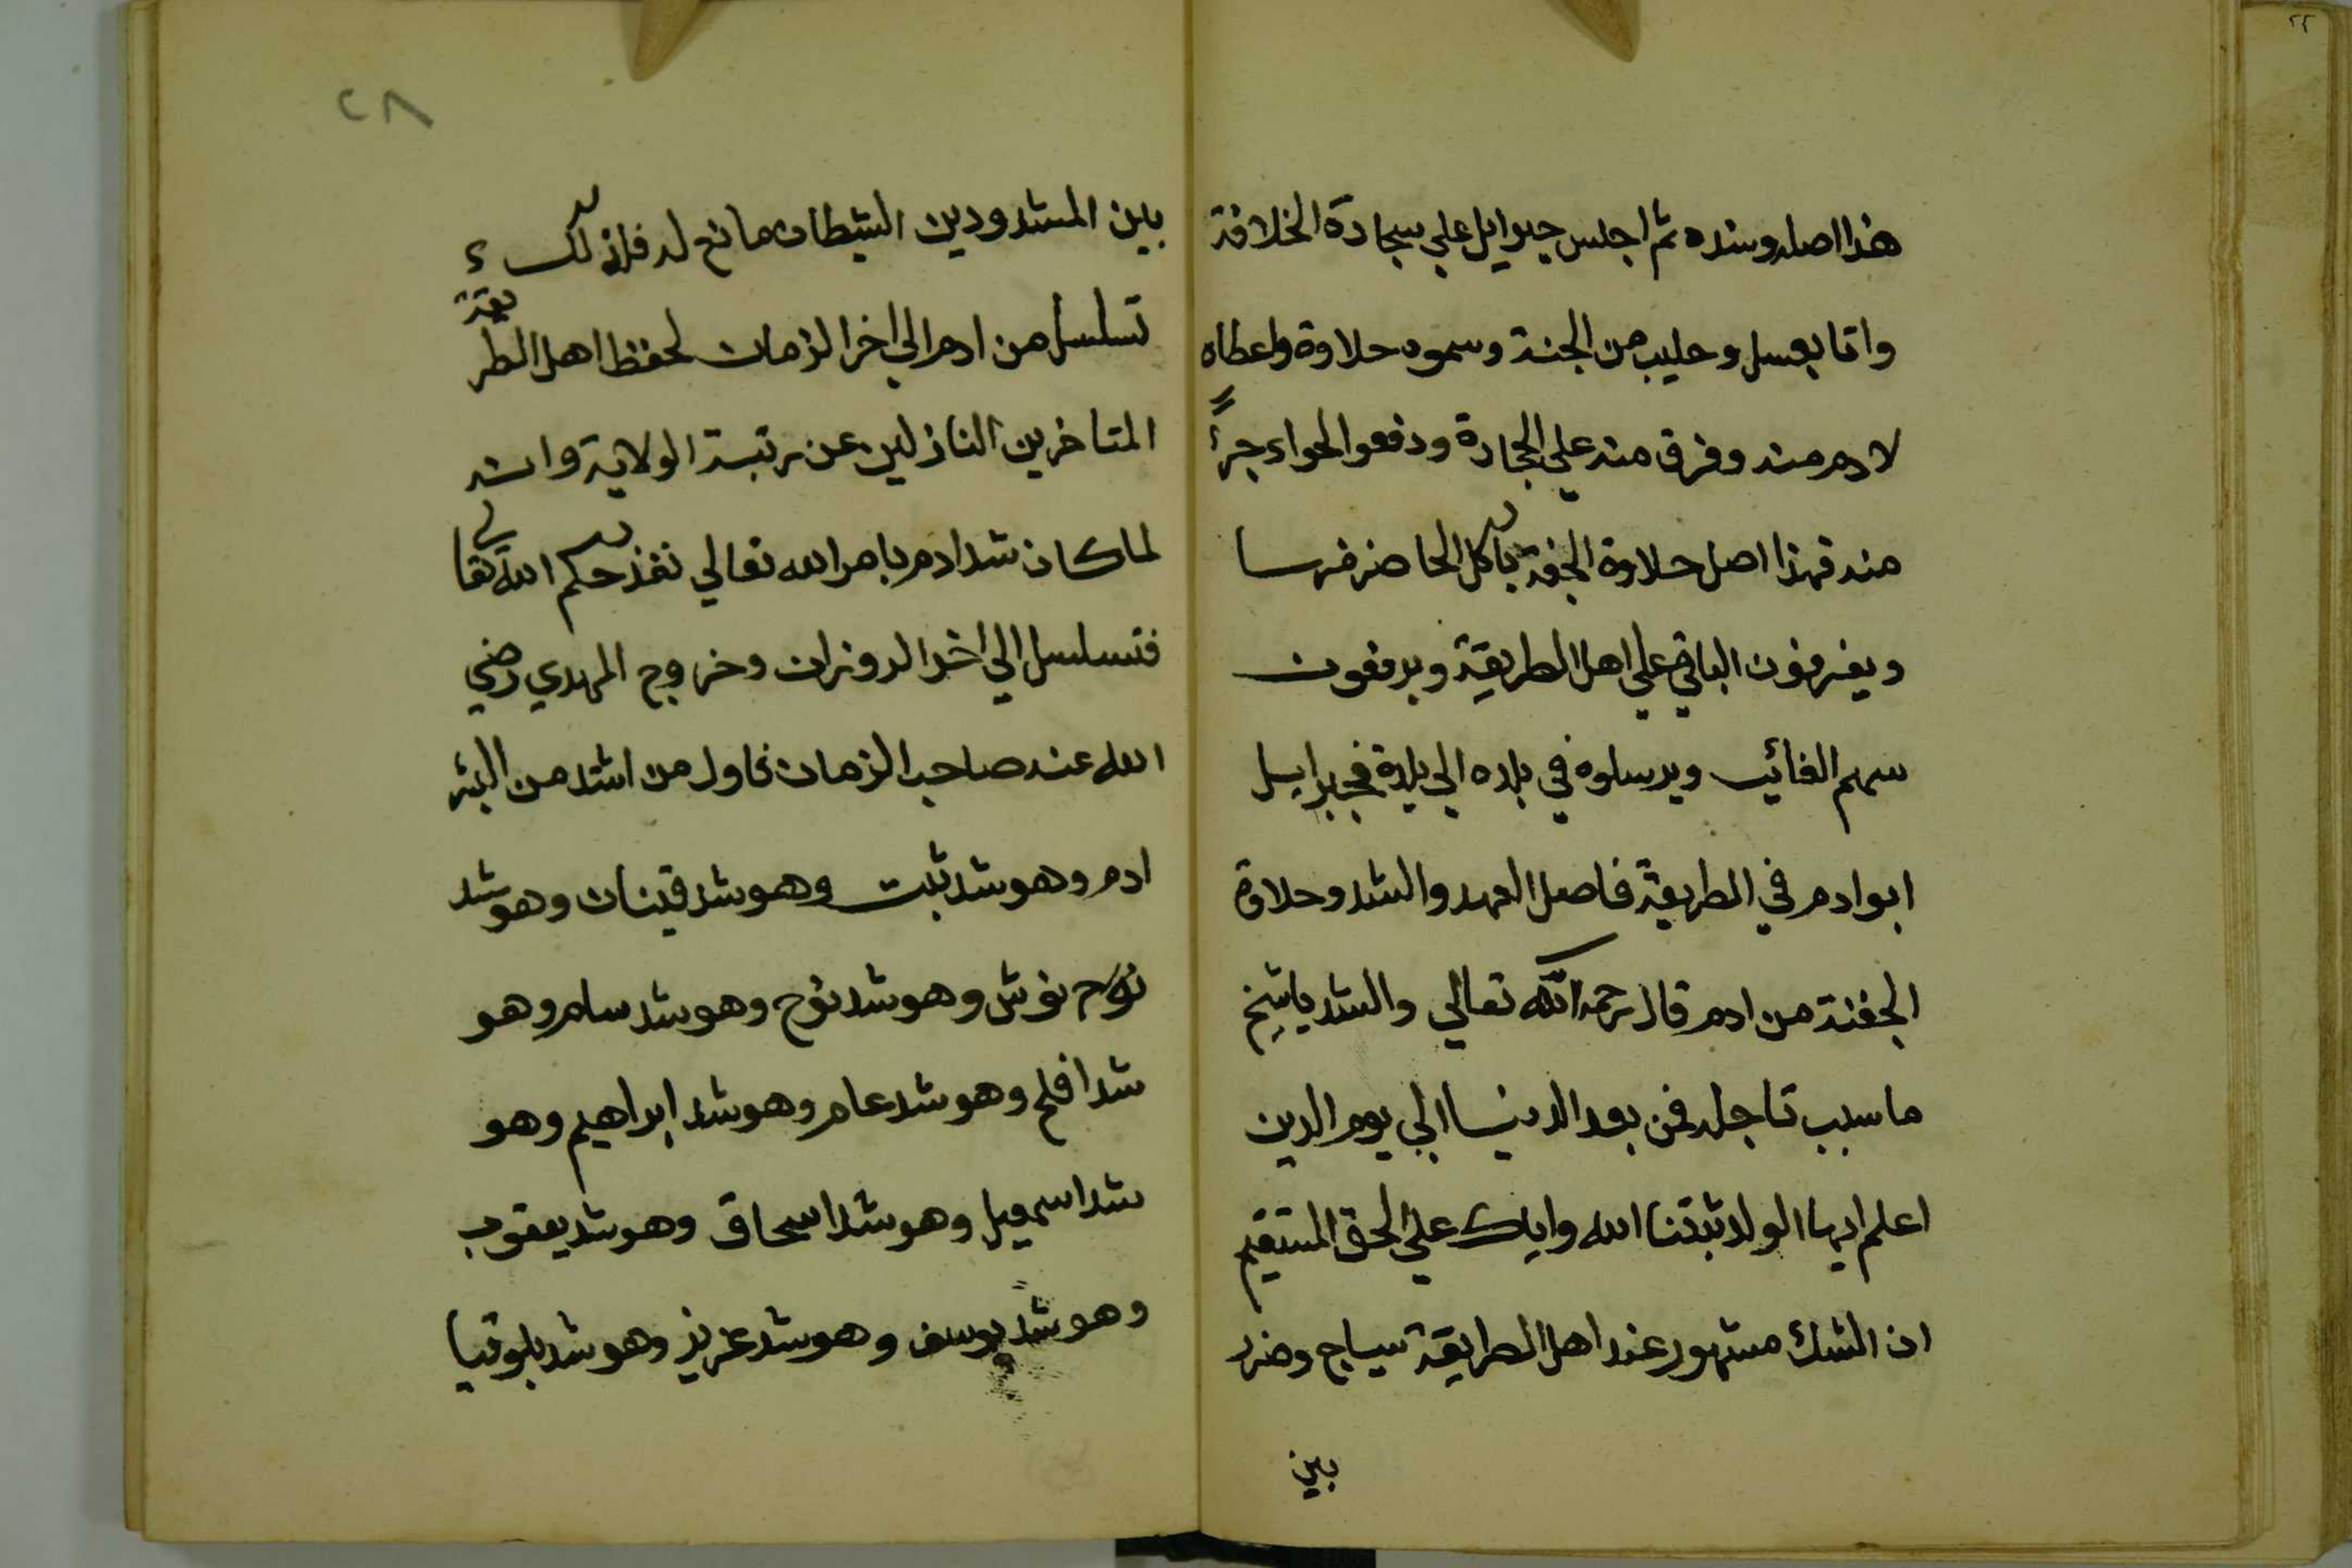 هذا اصله وسنده ثم اجلس جبرايل علي سجادة الخلافة
واتا بعسل وحليب من الجنة وسموه حلاوة واعطاه
لادم منه وفرق منه علي الجادة ودفعوا لحواء جزأً
منه فهذا اصل حلاوة الجفنة ياكل الحاضر
ويفرقون الباقي علي اهل الطريقة ويرفعون
سهم الغائب ويرسلوه في بلده الي بلدة فجبرايل
ابو ادم في الطريقة فاصل العهد والشد وحلاوة
الجفنة من ادم قال رحمه الله تعالي والشد ياشيخ
ما سبب الدنيا الي يوم الدين
اعلم ايها الولد ثبتنا الله واياك علي الحق المستقيم
ان الشد مشهور عند اهل الطريقة سياج
بين
٢٨
بين المشدودين الشيطان مانع له فلذلك
تسلسل من ادم الي اخر الزمان لحفظ اهل الطريقة
المتاخرين النازلين عن رتبة الولاية وانه
لما كان شد ادم بامر الله تعالي نفذ حكم الله تعالي
فتسلسل الي اخر الدوران وخروج المهدي رضي
الله عنه صاحب الزمان فاول من اشد من البشر
ادم وهو شد شيت وهو شد قينان وهو شد
نوش وهو شد نوح وهو شد سام وهو
شد افلح وهو شد عامر وهو شد ابراهيم وهو
شد اسمعيل وهو شد اسحاق وهو شد يعقوب
وهو شد يوسف وهو شد عزيز وهو شد بلوقيا